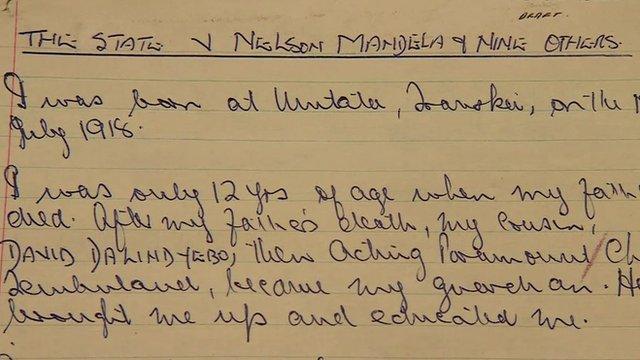 DRAFT.
THE STATE V NELSON MANDELA & NINE OTHERS.
I was born at Umtata, Transkei, on the
July 1918.
I was only 12 yrs of age when my fath
died. After my father's death, my cousin,
DAVID DALINDYEBO, then Acting Paramount Ch
Tembuland, became my guardian. He
brought me up and educated me.